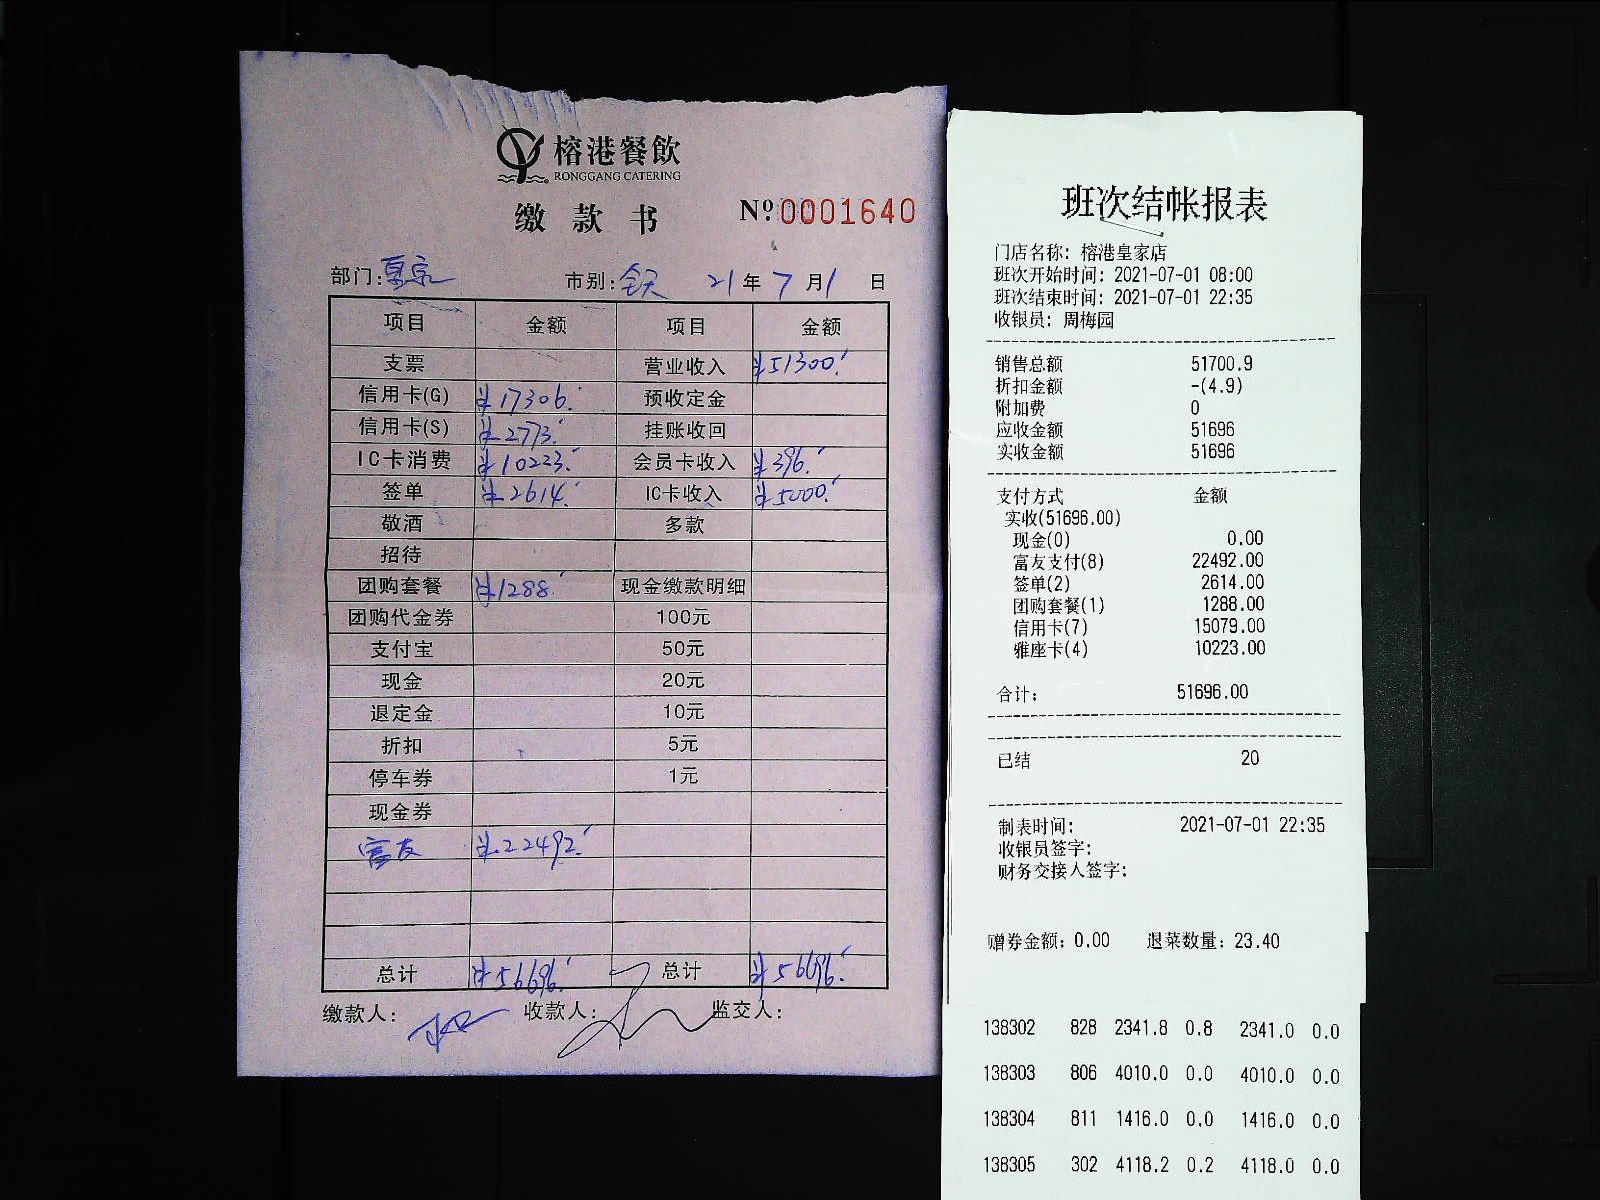 榕港餐飲
RONGGANG CATERING
缴款书 Nº 0001640
部门: 市别:全天 21年7月1日
项目 金额 项目 金额
支票 营业收入 ¥51300.
信用卡(G) ¥17306. 预收定金
信用卡(S) ¥2773. 挂账收回
IC卡消费 ¥10223. 会员卡收入 ¥396.
签单 ¥2614. IC卡收入 ¥5000.
敬酒 多款
招待
团购套餐 ¥1288. 现金缴款明细
团购代金券 100元
支付宝 50元
现金 20元
退定金 10元
折扣 5元
停车券 1元
现金券
富友 ¥22492.
总计 ¥56696. 总计 ¥56696.
缴款人: 收款人: 监交人:
班次结帐报表
门店名称: 榕港皇家店
班次开始时间: 2021-07-01 08:00
班次结束时间: 2021-07-01 22:35
收银员: 周梅园
销售总额 51700.9
折扣金额 -(4.9)
附加费 0
应收金额 51696
实收金额 51696
支付方式 金额
实收(51696.00)
现金(0) 0.00
富友支付(8) 22492.00
签单(2) 2614.00
团购套餐(1) 1288.00
信用卡(7) 15079.00
雅座卡(4) 10223.00
合计: 51696.00
已结 20
制表时间: 2021-07-01 22:35
收银员签字:
财务交接人签字:
赠券金额: 0.00 退菜数量: 23.40
138302 828 2341.8 0.8 2341.0 0.0
138303 806 4010.0 0.0 4010.0 0.0
138304 811 1416.0 0.0 1416.0 0.0
138305 302 4118.2 0.2 4118.0 0.0